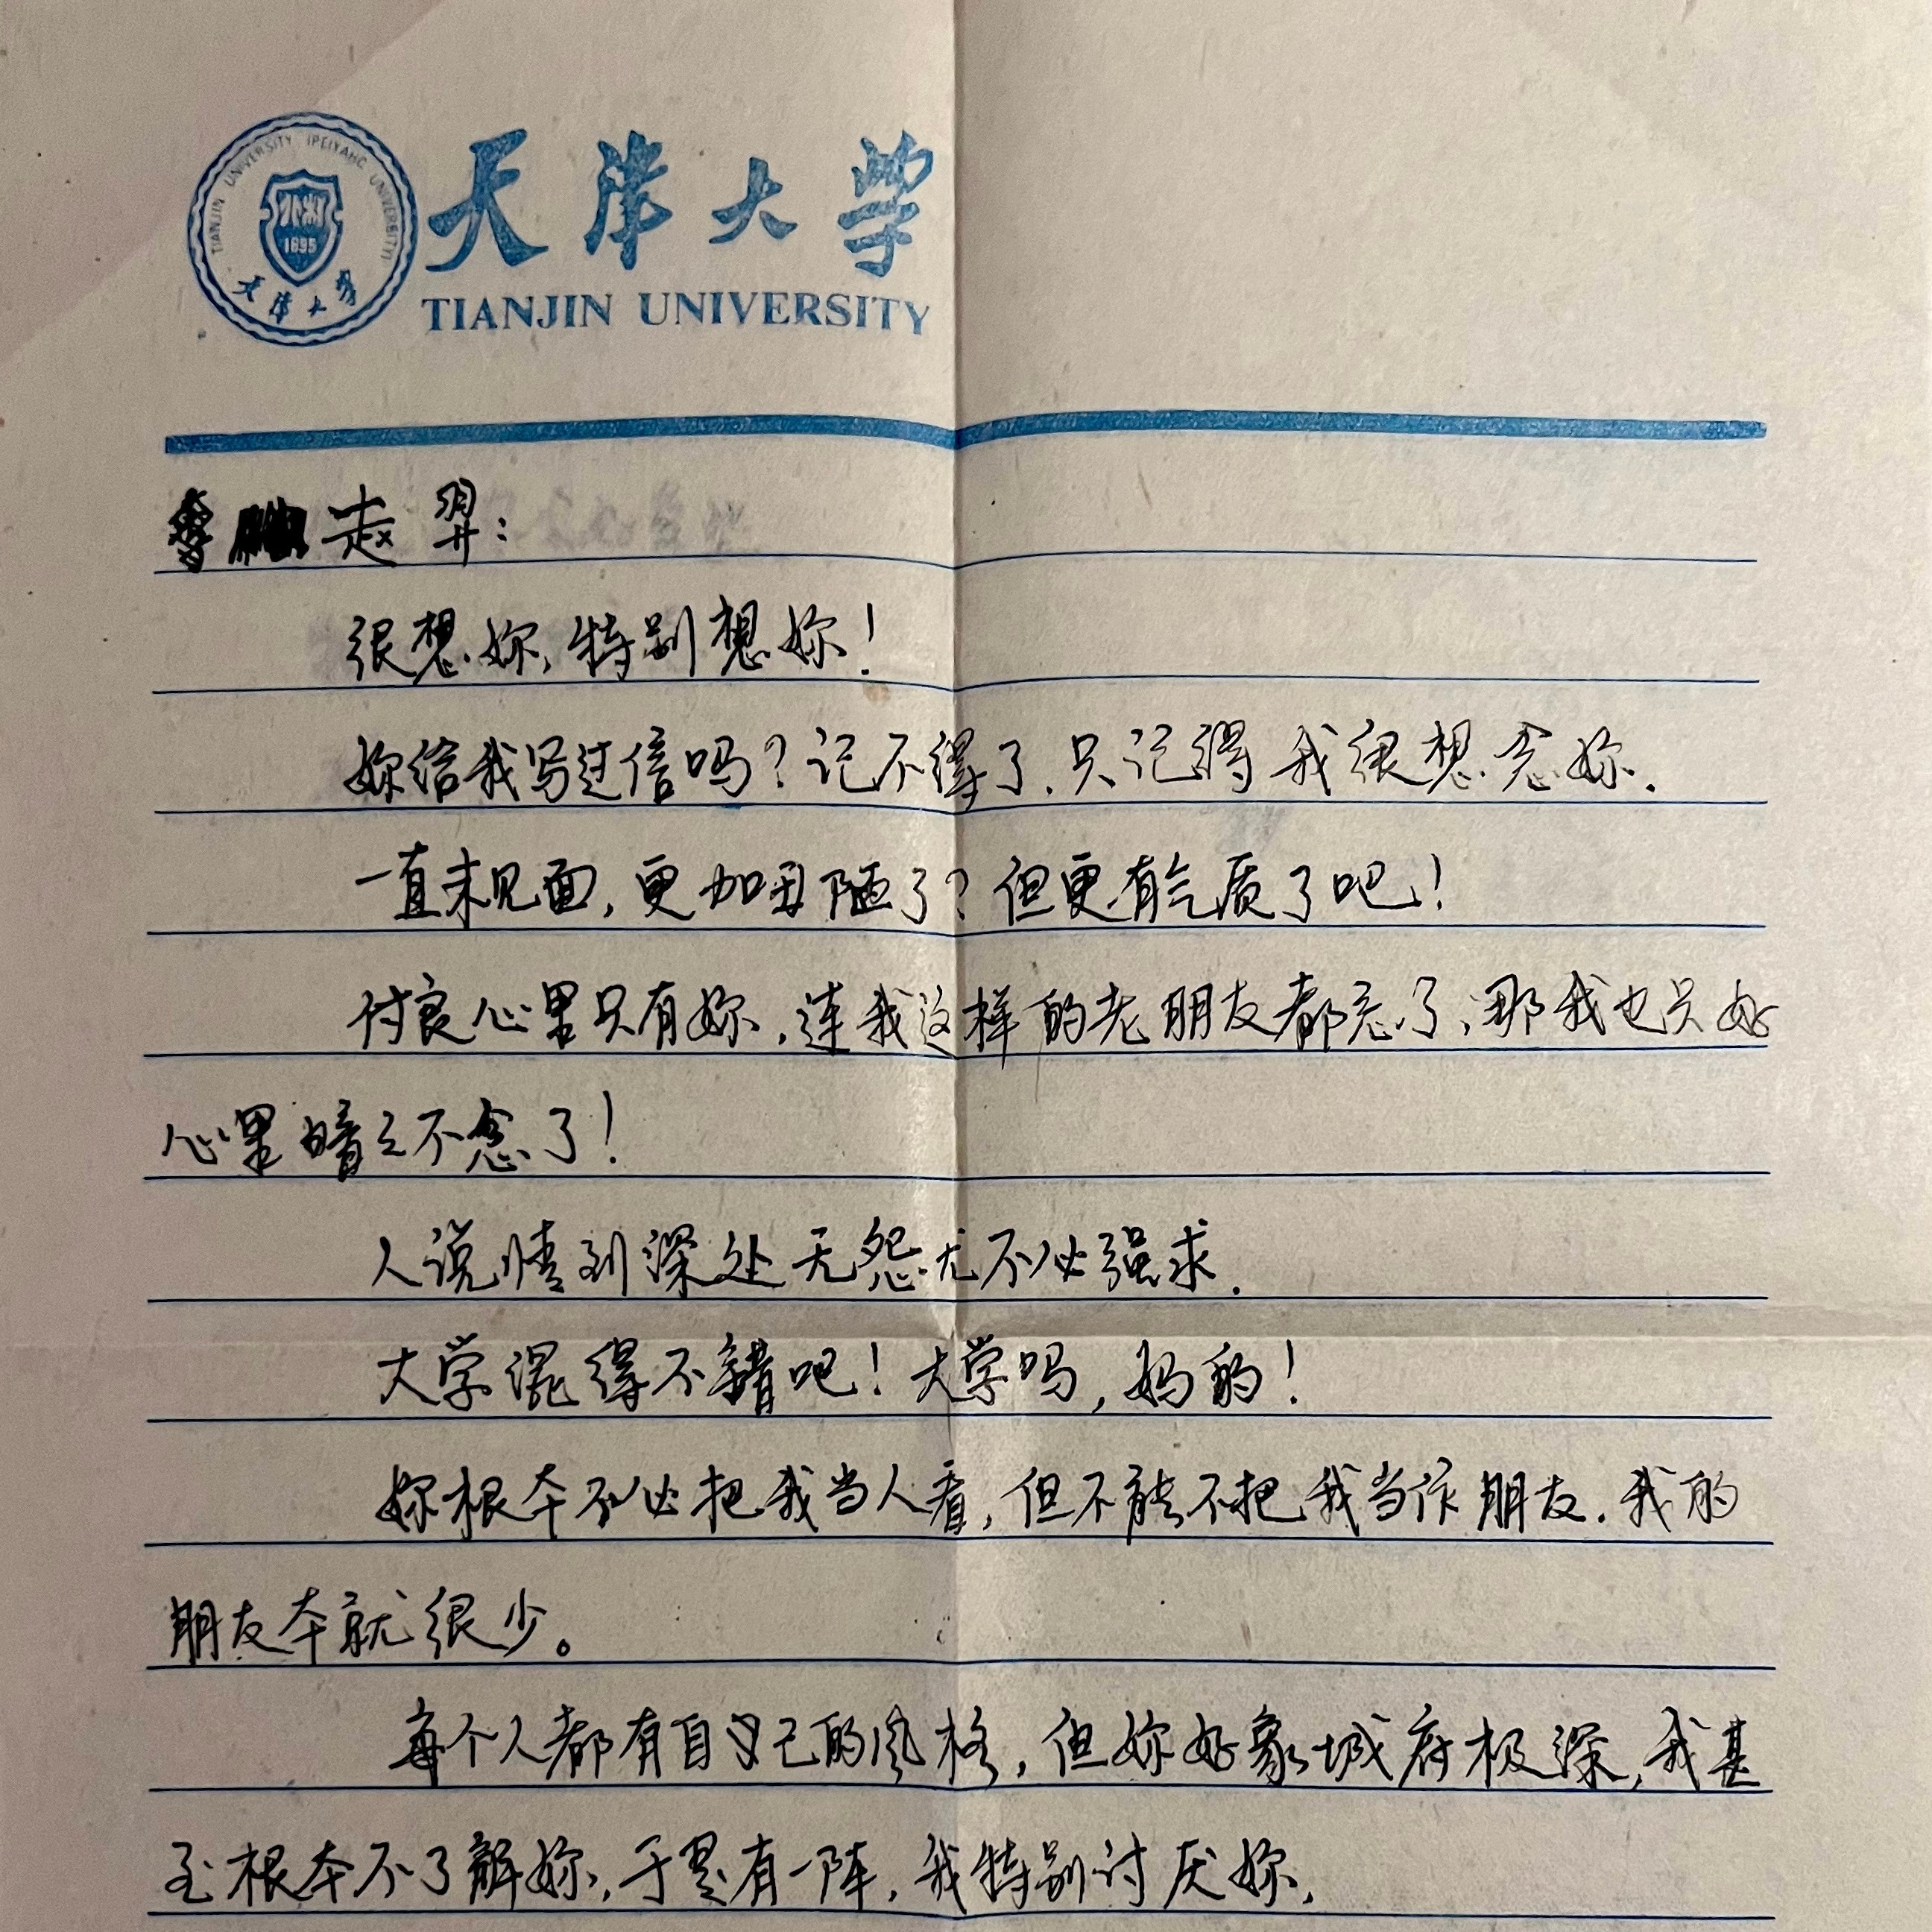 TIANJIN UNIVERSITY (PEIYANG UNIVERSITY)
1895
天津大學
天津大學
TIANJIN UNIVERSITY
赵羿：
很想妳，特别想妳！
妳给我写过信吗？记不得了．只记得我很想念妳．
一直未见面，更加丑陋了？但更有气质了吧！
付良心里只有妳，连我这样的老朋友都忘了，那我也只好
心里暗々不念了！
人说情到深处无怨尤不必强求．
大学混得不错吧！大学吗，妈的！
妳根本不必把我当人看，但不能不把我当作朋友．我的
朋友本就很少。
每个人都有自己的风格，但妳好象城府极深，我甚
至根本不了解妳，于是有一阵，我特别讨厌妳，